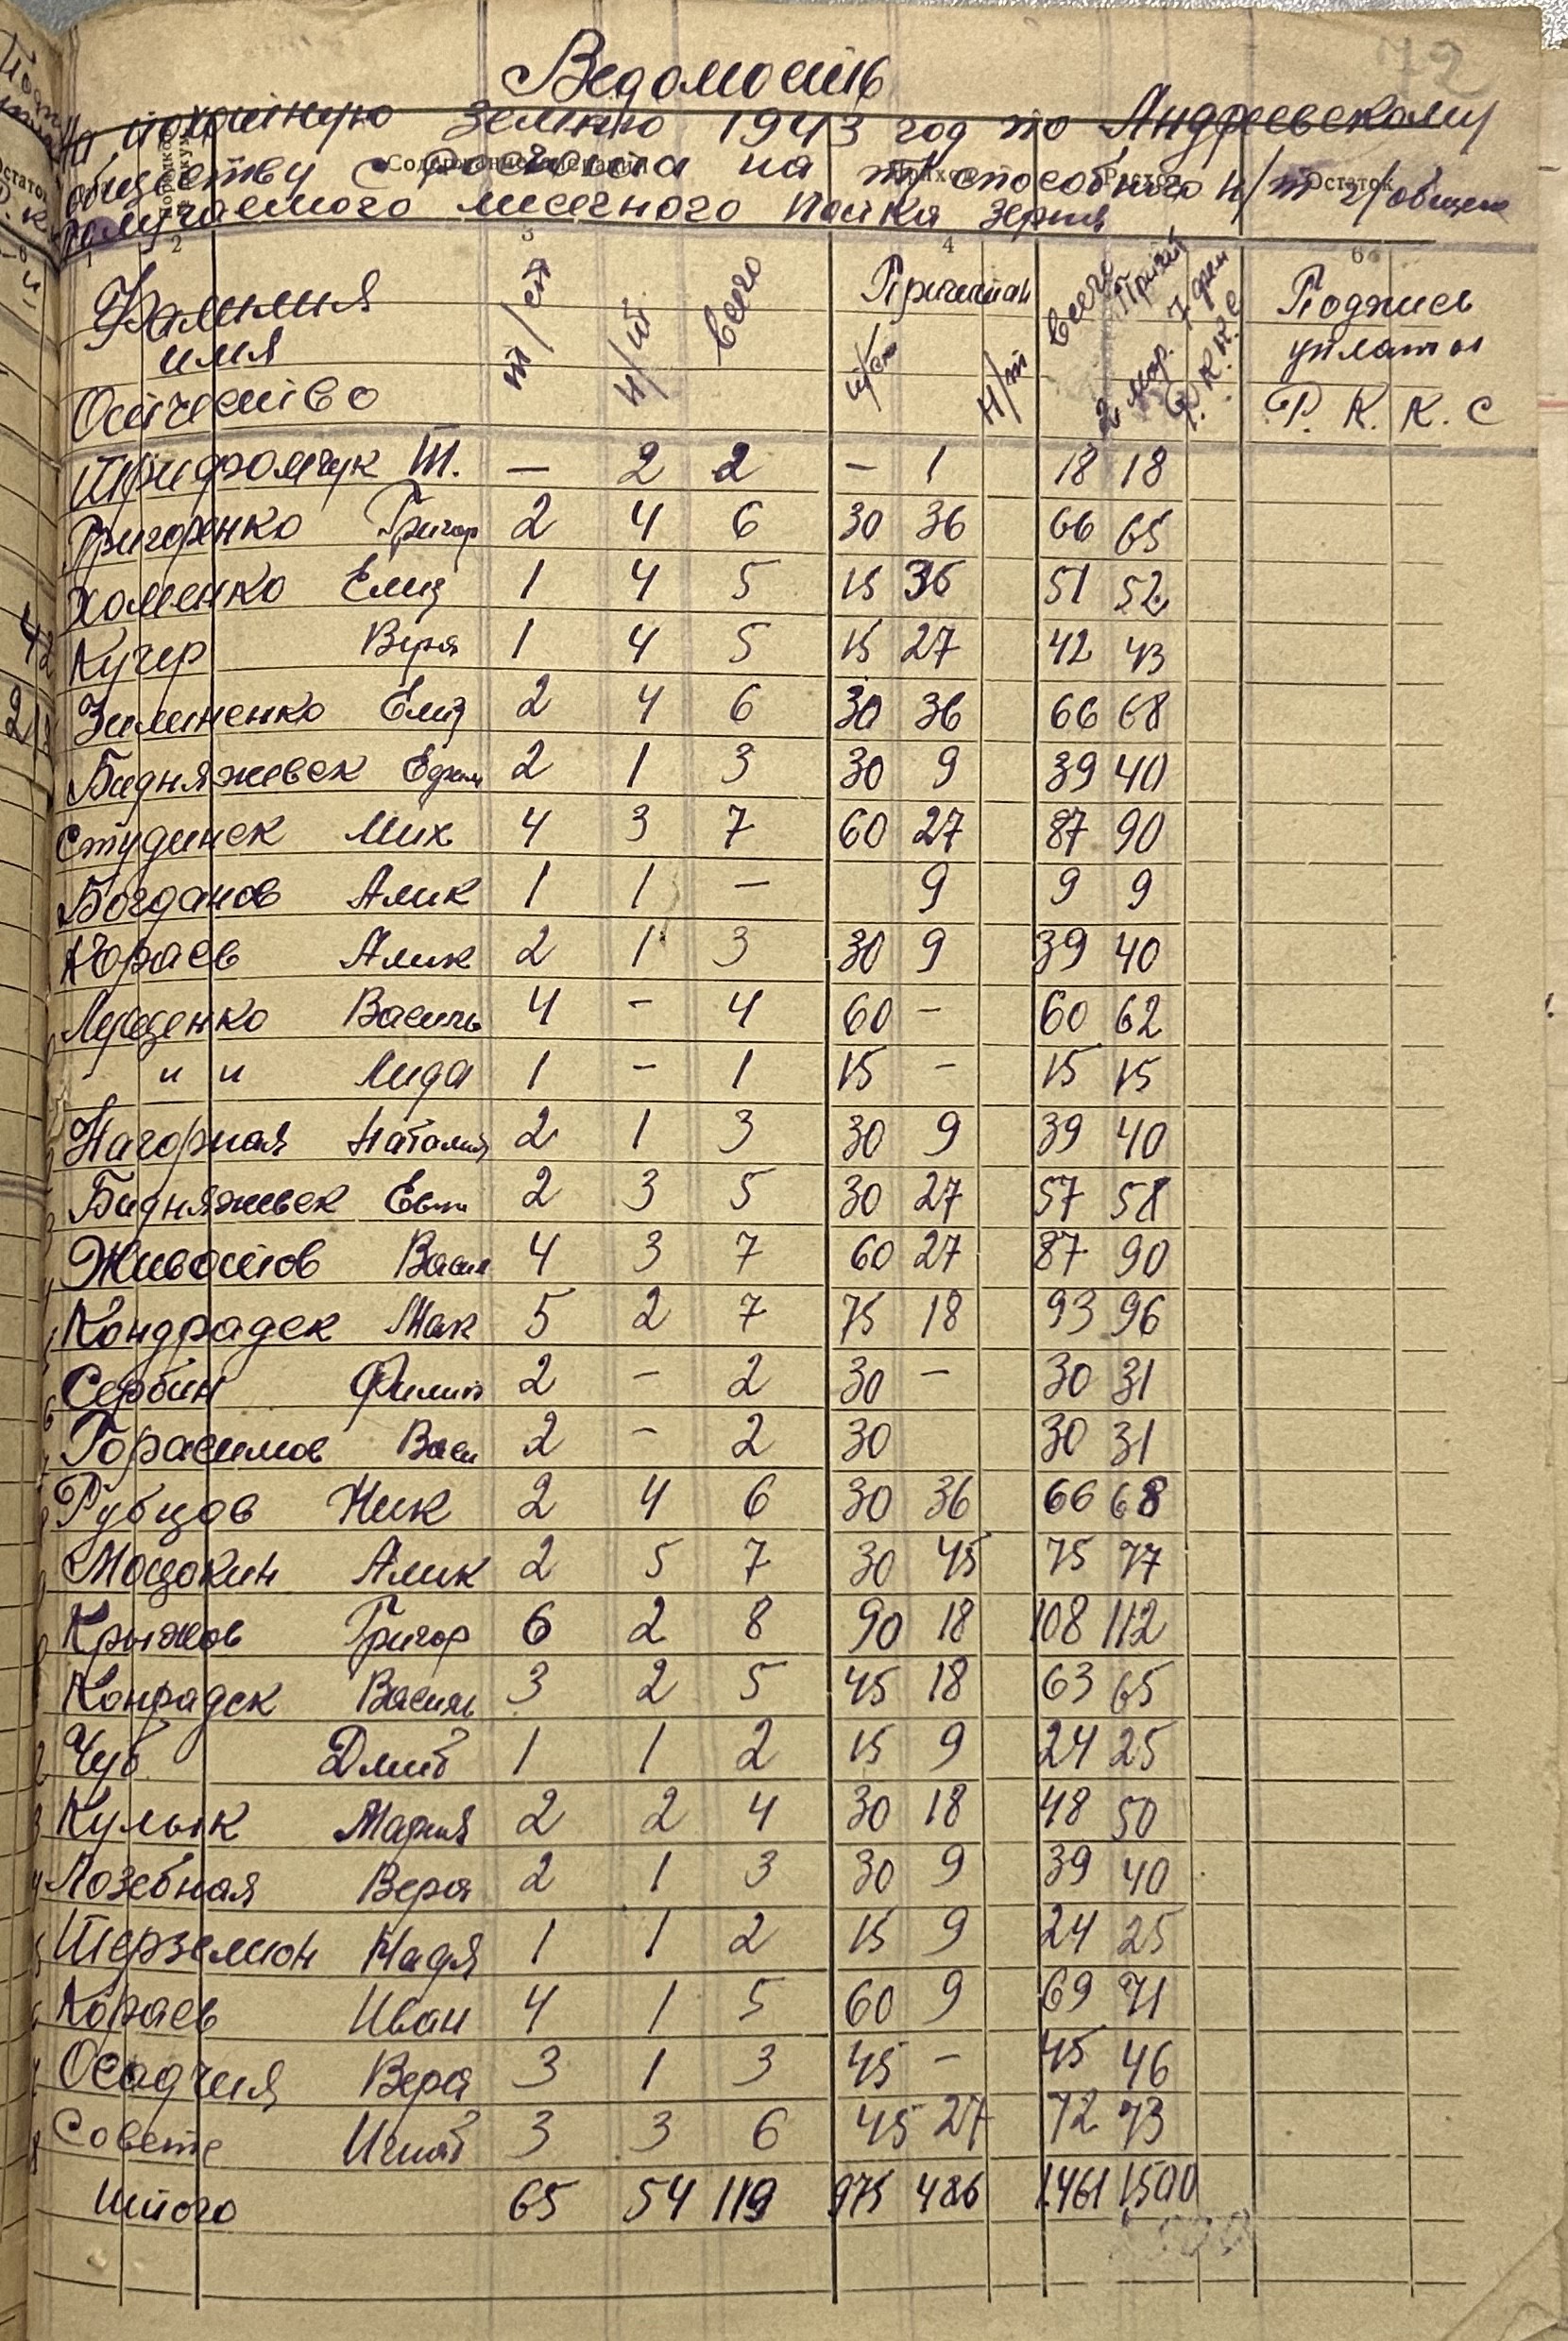 72
Ведомость
На пахотную землю 1943 год по Андреевскому
обществу с росчота на т/способного н/т г/общем
получаемого месечного пайка зерна
Содержание
Приход
Расход
Остаток
1 2 3 4 6
Фамилия имя Отчество т/сп н/т Всего Причетаи т/сп н/т Всего Подпись уплаты Р. К. К. С
Трифромчук Т. — 2 2 — 1 18 18
Григоренко Григор 2 4 6 30 36 66 65
Хоменко Елиз 1 4 5 15 36 51 52
Кучер Вера 1 4 5 15 27 42 43
Зимненко Елиз 2 4 6 30 36 66 68
Бидняжевск Ефим 2 1 3 30 9 39 40
Студинск Мих 4 3 7 60 27 87 90
Богданов Алик 1 1 — 9 9 9
Кораев Алик 2 1 3 30 9 39 40
Луценко Василь 4 - 4 60 - 60 62
" и и Лида 1 - 1 15 - 15 15
Нагорная Наталия 2 1 3 30 9 39 40
Бидняжевск Евт 2 3 5 30 27 57 58
Животов Васил 4 3 7 60 27 87 90
Кондрадск Мак 5 2 7 75 18 93 96
Сербин Филип 2 - 2 30 - 30 31
Горасимов Васи 2 - 2 30 30 31
Рубцов Ник 2 4 6 30 36 66 68
Моцокин Алик 2 5 7 30 45 75 77
Крыжов Григор 6 2 8 90 18 108 112
Конрадск Василь 3 2 5 45 18 63 65
Чуб Дмит 1 1 2 15 9 24 25
Кулык Мария 2 2 4 30 18 48 50
Лозебная Вера 2 1 3 30 9 39 40
Терземион Надя 1 1 2 15 9 24 25
Кораев Иван 4 1 5 60 9 69 71
Осадчия Вера 3 1 3 45 - 45 46
Совете Игнат 3 3 6 45 27 72 73
Итого 65 54 119 975 486 1461 1500